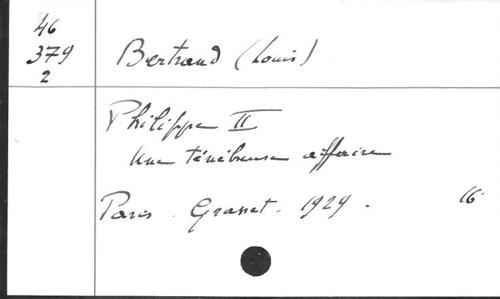 46
379
2
Bertrand (Louis)
Philippe II
Une ténébreuse affaire
Paris. Grasset. 1929. 16